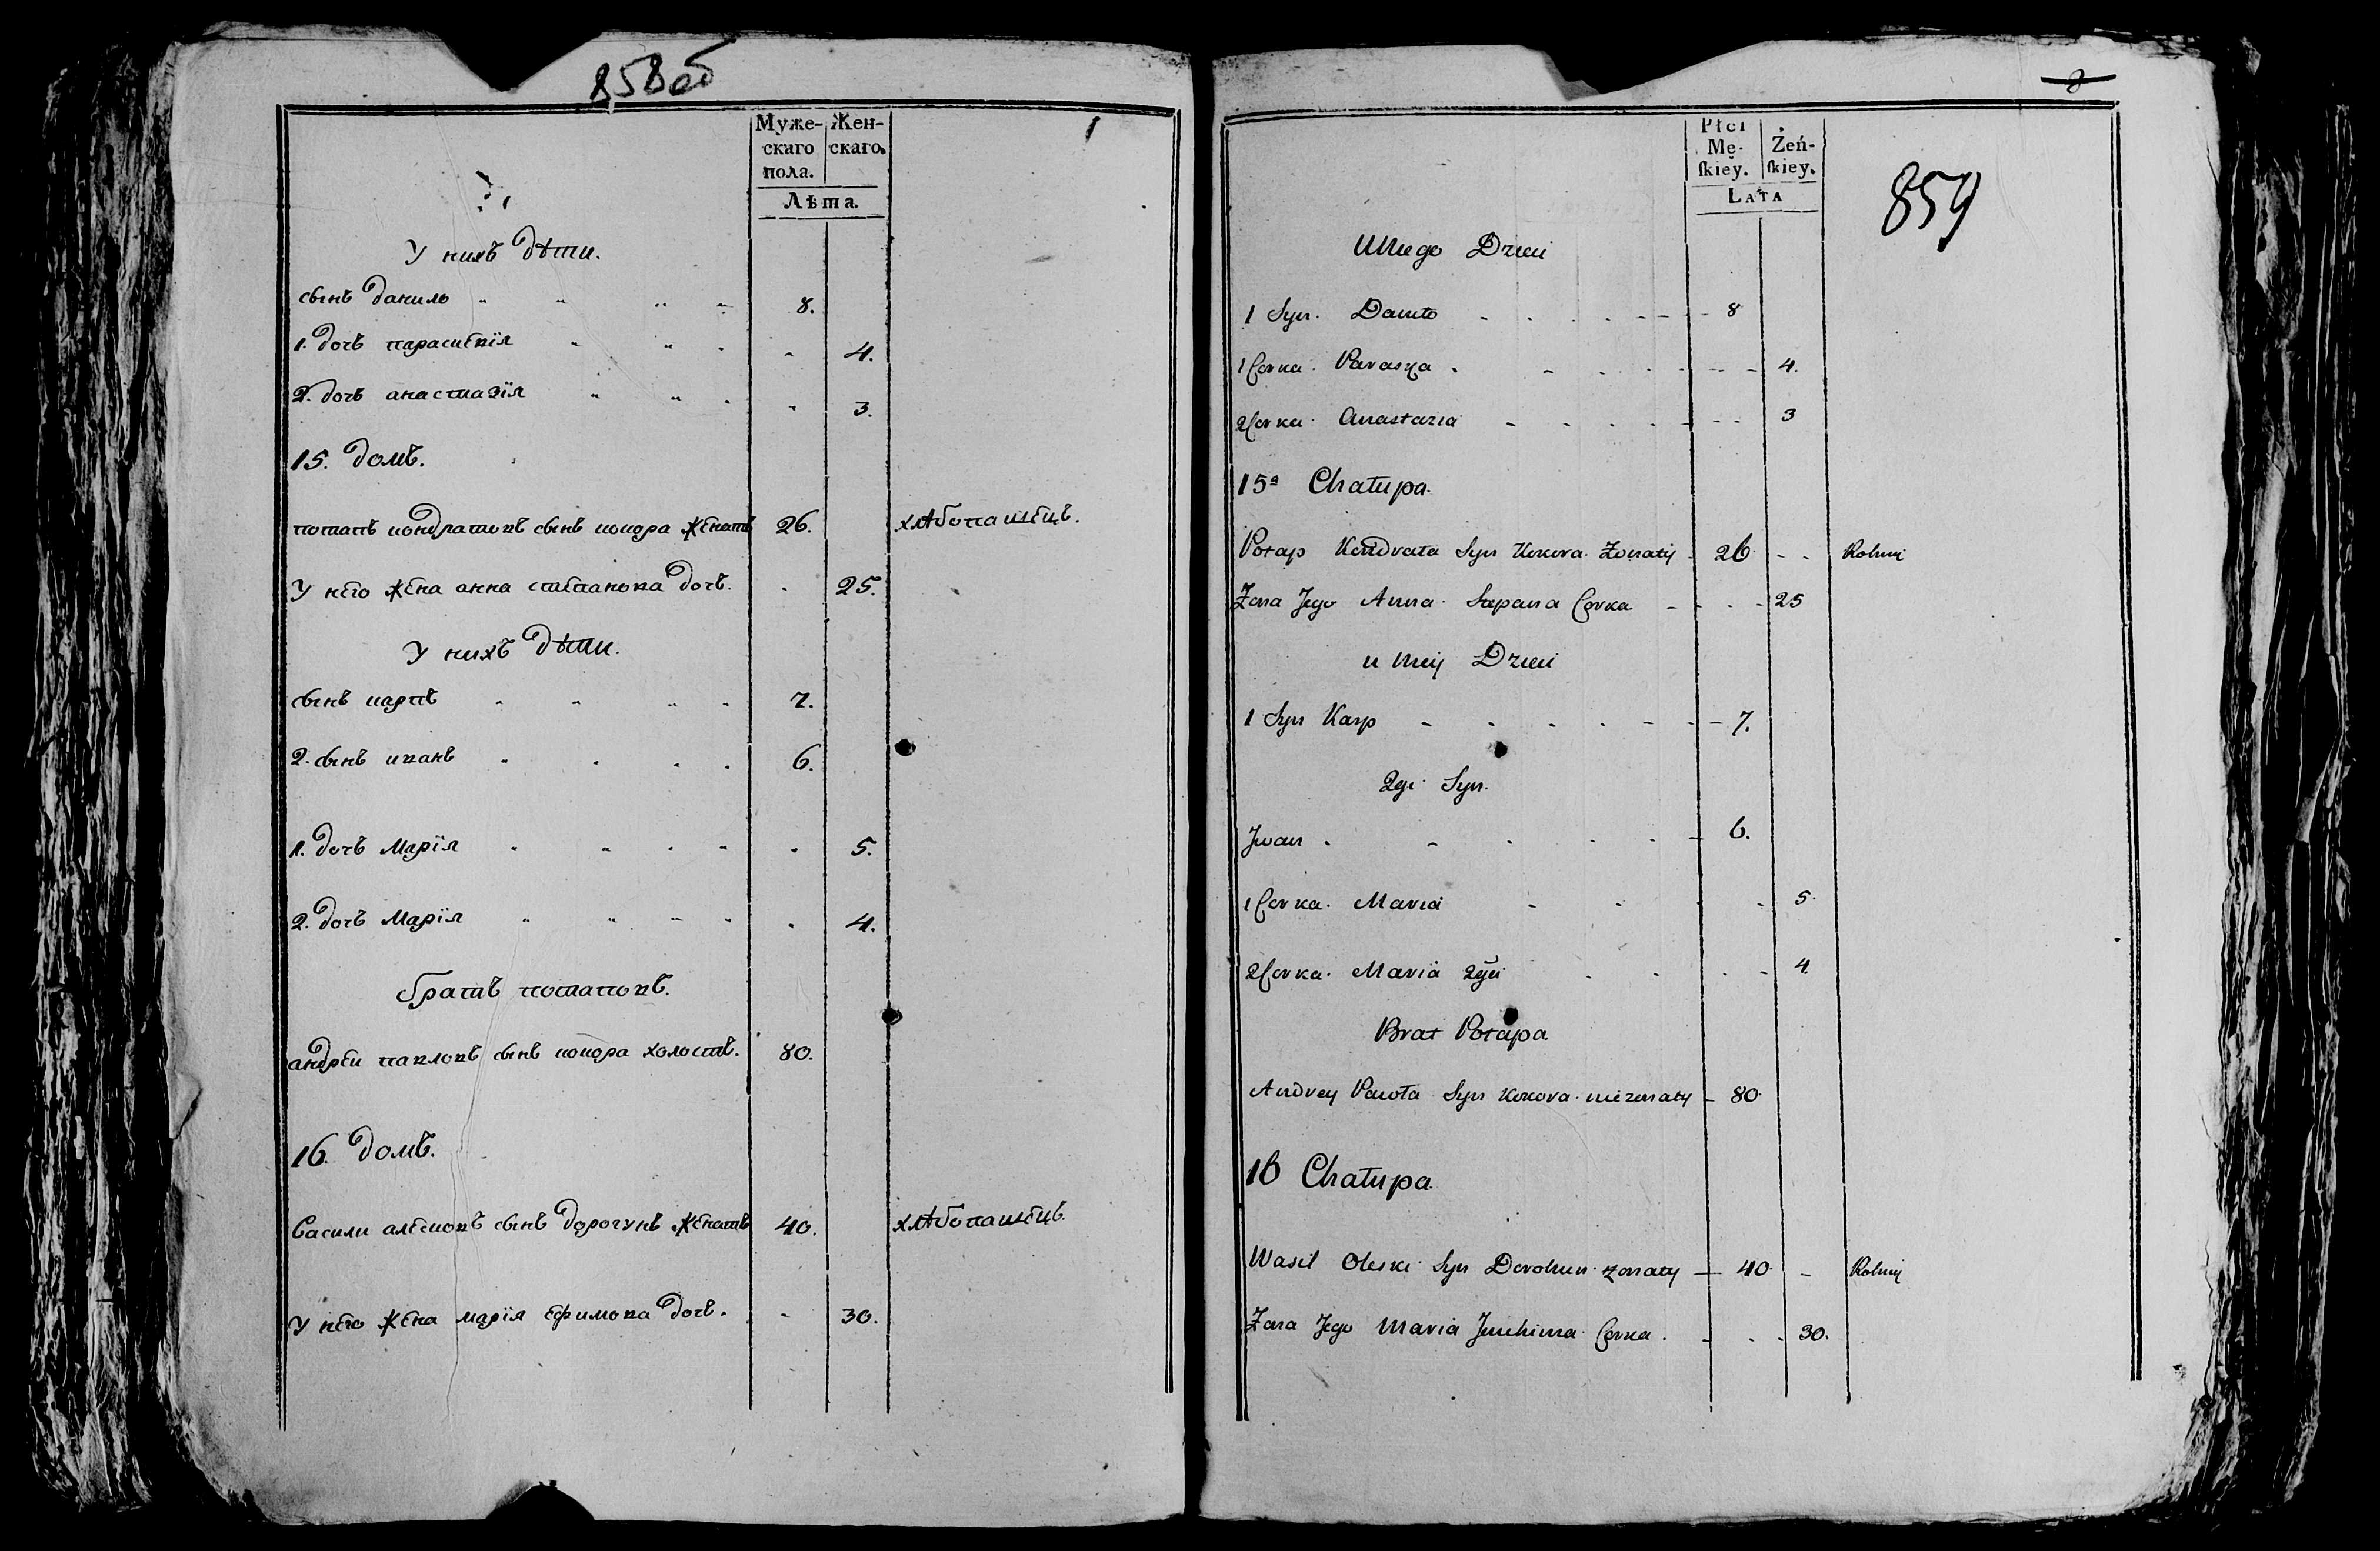 858об
1
Муже-
скаго
пола.
Жен-
скаго.
Лѣта.
У нихъ дѣти.
сынъ даниль 8.
1. дочь параскевія 4.
2. дочь анастазія 3.
15. домъ.
потапъ кондратовъ сынъ кокора женатъ 26. хлѣбопашецъ.
У него жена анна степанова дочь. 25.
У нихъ дѣти.
сынъ карпъ 7.
2. сынъ иванъ 6.
1. дочь Марія 5.
2. дочь Марія 4.
братъ потаповъ.
андрей павловъ сынъ кокора холостъ. 80.
16. домъ.
Василий алексѣовъ сынъ дорогунъ женатъ 40. хлѣбопашецъ.
У него жена марія ефимова дочь. 30.
8
859
Płci
Mę-
ſkiey.
Żeń-
ſkiey.
LATA
U Niego Dzieci
1 Syn. Daniło 8
1 Corka. Paraska 4.
2 Corka. Anastazia 3
15ª Chałupa.
Potap Kondrata Syn Kokora. Zonaty 26 Rolnik
Zona Jego Anna Stepana Corka 25
u Niey Dzieci
1 Syn Karp 7.
2gi Syn.
Jwan 6.
1 Corka. Maria 5.
2 Corka. Maria 4.
Brat Potapa
Andrey Pawła Syn Kokora niezonaty 80
16 Chałupa.
Wasil Oleski Syn Dorohun zonaty 40 Rolnik
Zona Jego Maria Juchima Corka. 30.